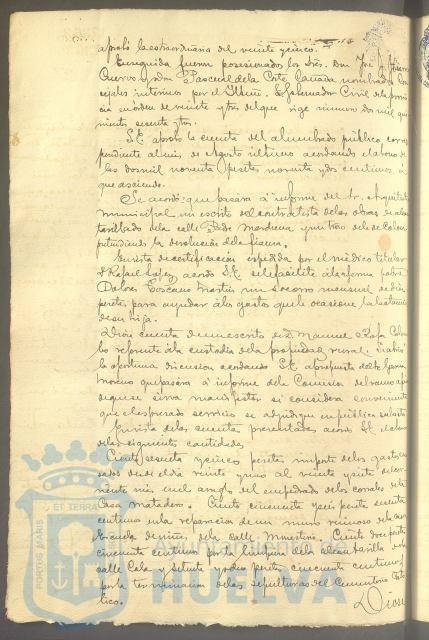 aprobó la extraordinaria del veinte y cinco.
Enseguida fueron posesionados los Sres. Don José
Cuervo y don Pascual de la Corte Cañada nombrados Con
cejales interinos por el Iltmo. Sr. Gobernador Civil de la provin
cia en orden de veinte y tres del que rige número dos mil qui
nientos sesenta y tres.
S.E. aprobó la cuenta del alumbrado público corres
pondiente al mes de Agosto último acordando el abono de
las dos mil noventa pesetas noventa y dos centimos a
que asciende.
Se acordó que pasara á informe del Sr. Arquitecto
municipal un escrito del contratista de las obras de alcan
tarillado de la calle
pretendiendo la devolución de la fianza.
En vista de certificación expedida por el médico titular
D. Rafael Lopez acordó S.E. se le facilite á la enferma pobre
Dolores Toscano Martin un socorro mensual de diez
pesetas para ayudar á los gastos que le ocasione la lactancia
de su hija.
Dióse cuenta de un escrito de D. Manuel
referente á la custodia de la propiedad rural.
la oportuna discusion acordando S.E. a propuesta del Sr. Garcia
Moreno que pasara á informe de la Comision del ramo
se sirva manifestar si considera conveniente
que el expresado servicio se adjudique en pública subasta
En vista de las cuentas presentadas acordó S.E. el abono
de las siguientes cantidades
Ciento sesenta y cinco pesetas importe de los gastos
sados desde el dia veinte y uno al veinte y siete del co
rriente mes en el arreglo del empedrado de los corrales de la
Casa matadero. Ciento cincuenta y seis pesetas sesenta
centimos en la reparacion de un muro ruinoso de la
Escuela de niños de la calle
cincuenta centimos por la limpieza de la alcantarilla de la
calle Cala y setenta y dos pesetas cincuenta centimos
por la terminacion de las sepulturas del Cementerio Cató
lico.
Dióse
PORTUS MARIS ET TERRAE
Ayuntamiento de
HUELVA